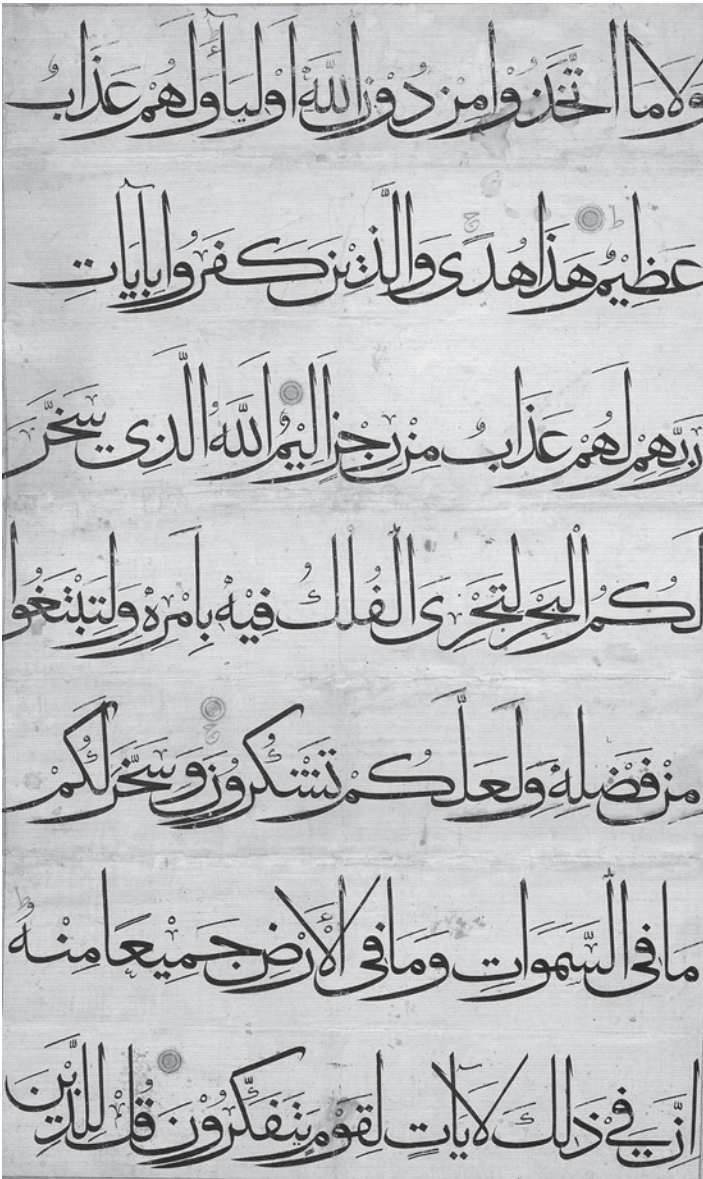 وَلَا مَا اتَّخَذُوا مِنْ دُونِ اللَّهِ أَوْلِيَاءَ وَلَهُمْ عَذَابٌ
عَظِيمٌ هَذَا هُدًى وَالَّذِينَ كَفَرُوا بِآيَاتِ
رَبِّهِمْ لَهُمْ عَذَابٌ مِنْ رِجْزٍ أَلِيمٌ اللَّهُ الَّذِي سَخَّرَ
لَكُمُ الْبَحْرَ لِتَجْرِيَ الْفُلْكُ فِيهِ بِأَمْرِهِ وَلِتَبْتَغُوا
مِنْ فَضْلِهِ وَلَعَلَّكُمْ تَشْكُرُونَ وَسَخَّرَ لَكُمْ
مَا فِي السَّمَوَاتِ وَمَا فِي الْأَرْضِ جَمِيعًا مِنْهُ
إِنَّ فِي ذَلِكَ لَآيَاتٍ لِقَوْمٍ يَتَفَكَّرُونَ قُلْ لِلَّذِينَ